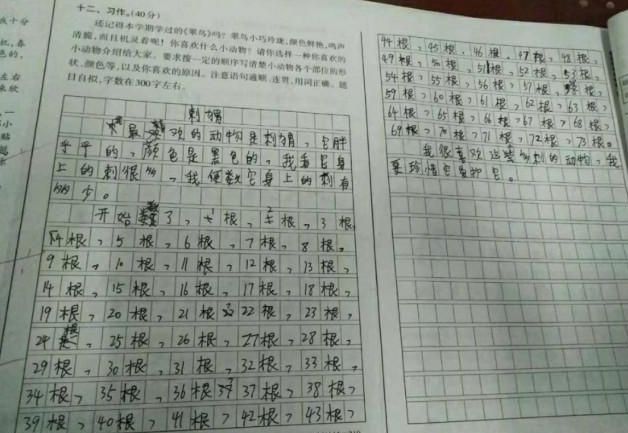 十二、习作。(40分)
还记得本学期学过的《翠鸟》吗？翠鸟小巧玲珑，颜色鲜艳，鸣声
清脆，而且机灵着呢！你喜欢什么小动物？请你选择一种你喜欢的
小动物介绍给大家。要求按一定的顺序写清楚小动物各个部位的形
状、颜色等，以及你喜欢的原因。注意语句通顺、连贯，用词正确。题
目自拟，字数在300字左右。
刺猬
我最喜欢的动物是刺猬，它胖
乎乎的，颜色是黑色的，我看它身
上的刺很多，我便数它身上的刺有
多少。
开始数了，1根，2根，3根，
4根，5根，6根，7根，8根，
9根，10根，11根，12根，13根，
14根，15根，16根，17根，18根，
19根，20根，21根，22根，23根，
24根，25根，26根，27根，28根，
29根，30根，31根，32根，33根，
34根，35根，36根，37根，38根，
39根，40根，41根，42根，43根，
44根，45根，46根，47根，48根，
49根，50根，51根，52根，53根，
54根，55根，56根，57根，58根，
59根，60根，61根，62根，63根，
64根，65根，66根，67根，68根，
69根，70根，71根，72根，73根。
我很喜欢这多刺的动物，我
要珍惜它爱护它。